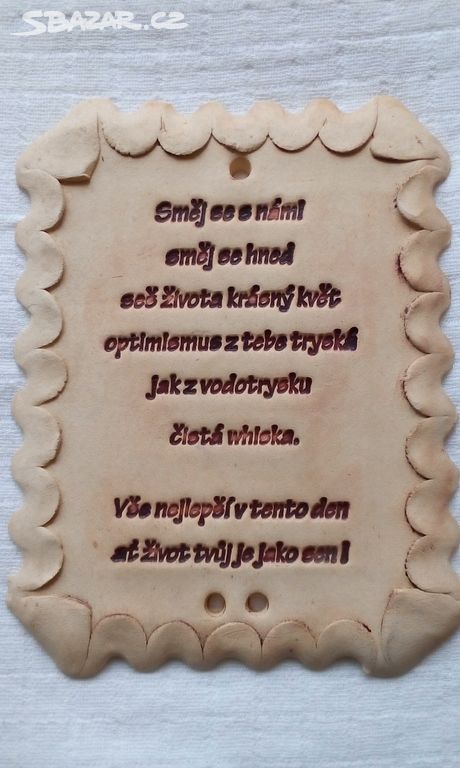 SBAZAR.CZ
Směj se s námi
směj se hned
seč života krásný květ
optimismus z tebe tryská
jak z vodotrysku
čistá whiska.
Vše nejlepší v tento den
ať život tvůj je jako sen !